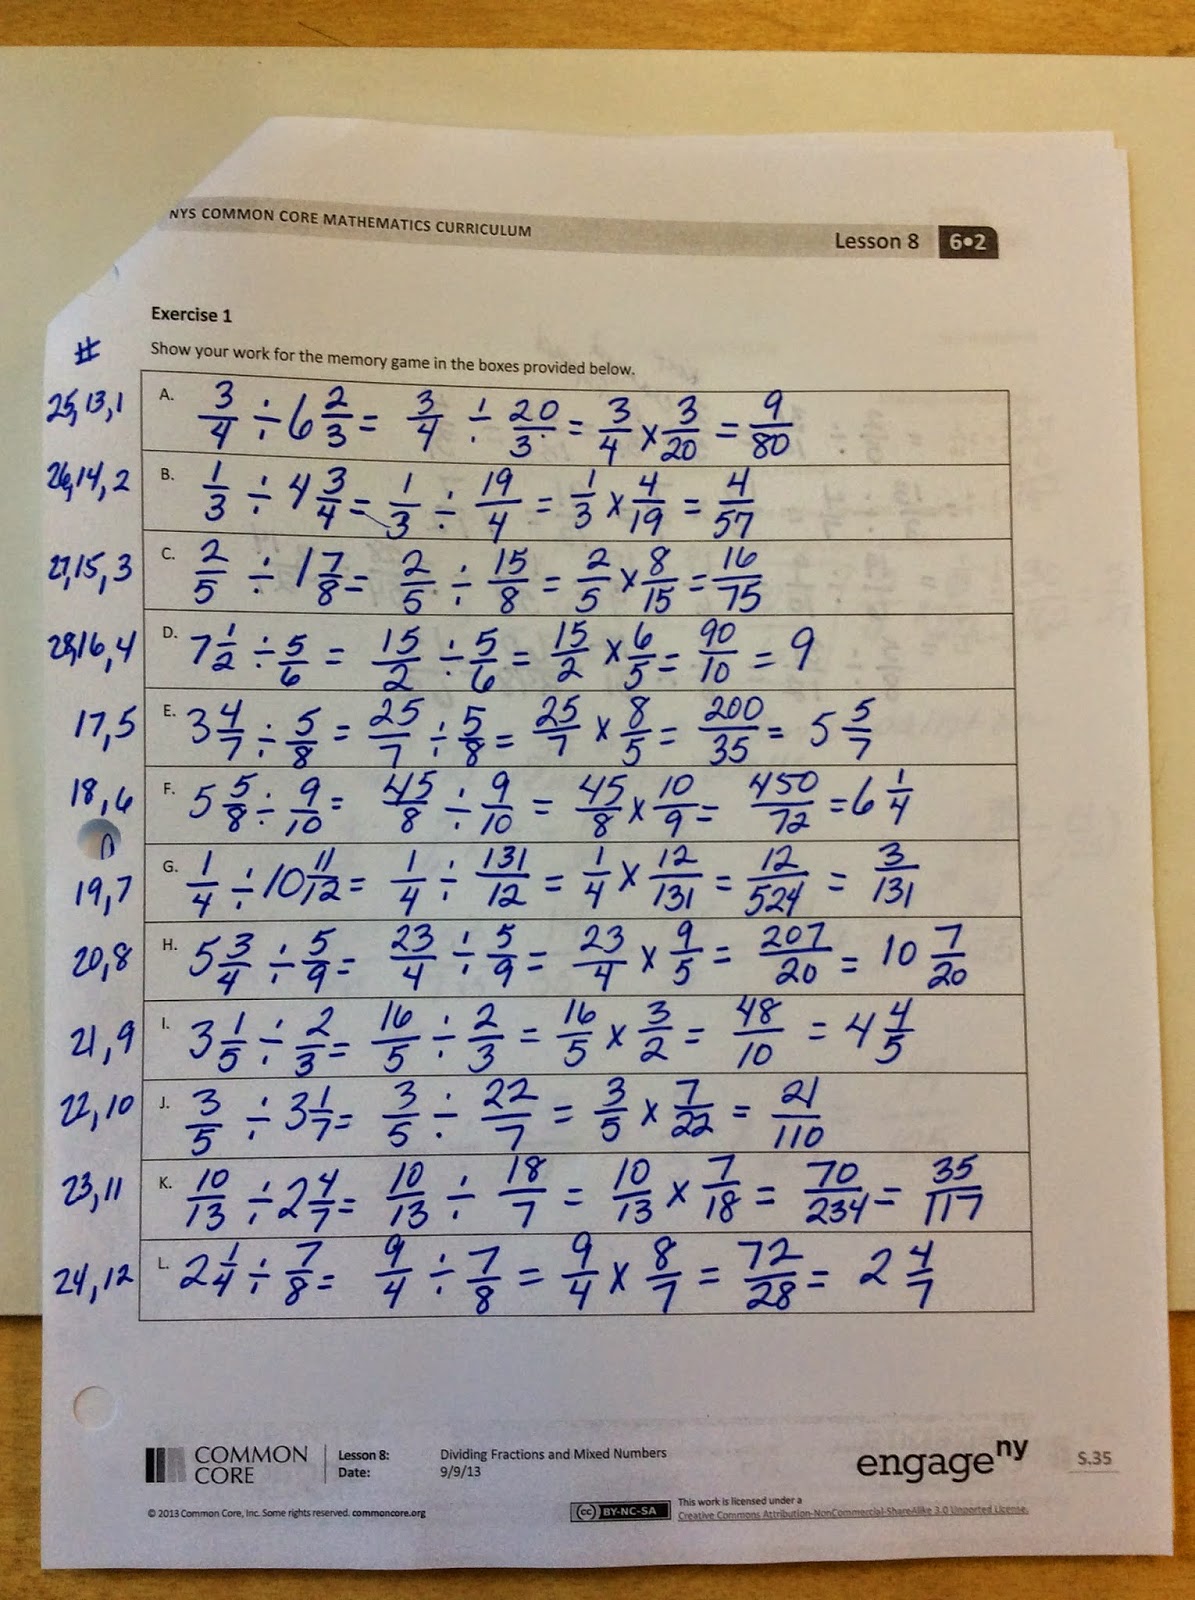 NYS COMMON CORE MATHEMATICS CURRICULUM
Lesson 8 6•2
Exercise 1
#
Show your work for the memory game in the boxes provided below.
25,13,1 A. 3/4 ÷ 6 2/3 = 3/4 ÷ 20/3 = 3/4 x 3/20 = 9/80
26,14,2 B. 1/3 ÷ 4 3/4 = 1/3 ÷ 19/4 = 1/3 x 4/19 = 4/57
27,15,3 C. 2/5 ÷ 1 7/8 = 2/5 ÷ 15/8 = 2/5 x 8/15 = 16/75
28,16,4 D. 7 1/2 ÷ 5/6 = 15/2 ÷ 5/6 = 15/2 x 6/5 = 90/10 = 9
17,5 E. 3 4/7 ÷ 5/8 = 25/7 ÷ 5/8 = 25/7 x 8/5 = 200/35 = 5 5/7
18,6 F. 5 5/8 ÷ 9/10 = 45/8 ÷ 9/10 = 45/8 x 10/9 = 450/72 = 6 1/4
19,7 G. 1/4 ÷ 10 11/12 = 1/4 ÷ 131/12 = 1/4 x 12/131 = 12/524 = 3/131
20,8 H. 5 3/4 ÷ 5/9 = 23/4 ÷ 5/9 = 23/4 x 9/5 = 207/20 = 10 7/20
21,9 I. 3 1/5 ÷ 2/3 = 16/5 ÷ 2/3 = 16/5 x 3/2 = 48/10 = 4 4/5
22,10 J. 3/5 ÷ 3 1/7 = 3/5 ÷ 22/7 = 3/5 x 7/22 = 21/110
23,11 K. 10/13 ÷ 2 4/7 = 10/13 ÷ 18/7 = 10/13 x 7/18 = 70/234 = 35/117
24,12 L. 2 1/4 ÷ 7/8 = 9/4 ÷ 7/8 = 9/4 x 8/7 = 72/28 = 2 4/7
COMMON CORE
Lesson 8: Dividing Fractions and Mixed Numbers
Date: 9/9/13
engage ny
S.35
© 2013 Common Core, Inc. Some rights reserved. commoncore.org
cc BY-NC-SA
This work is licensed under a
Creative Commons Attribution-NonCommercial-ShareAlike 3.0 Unported License.